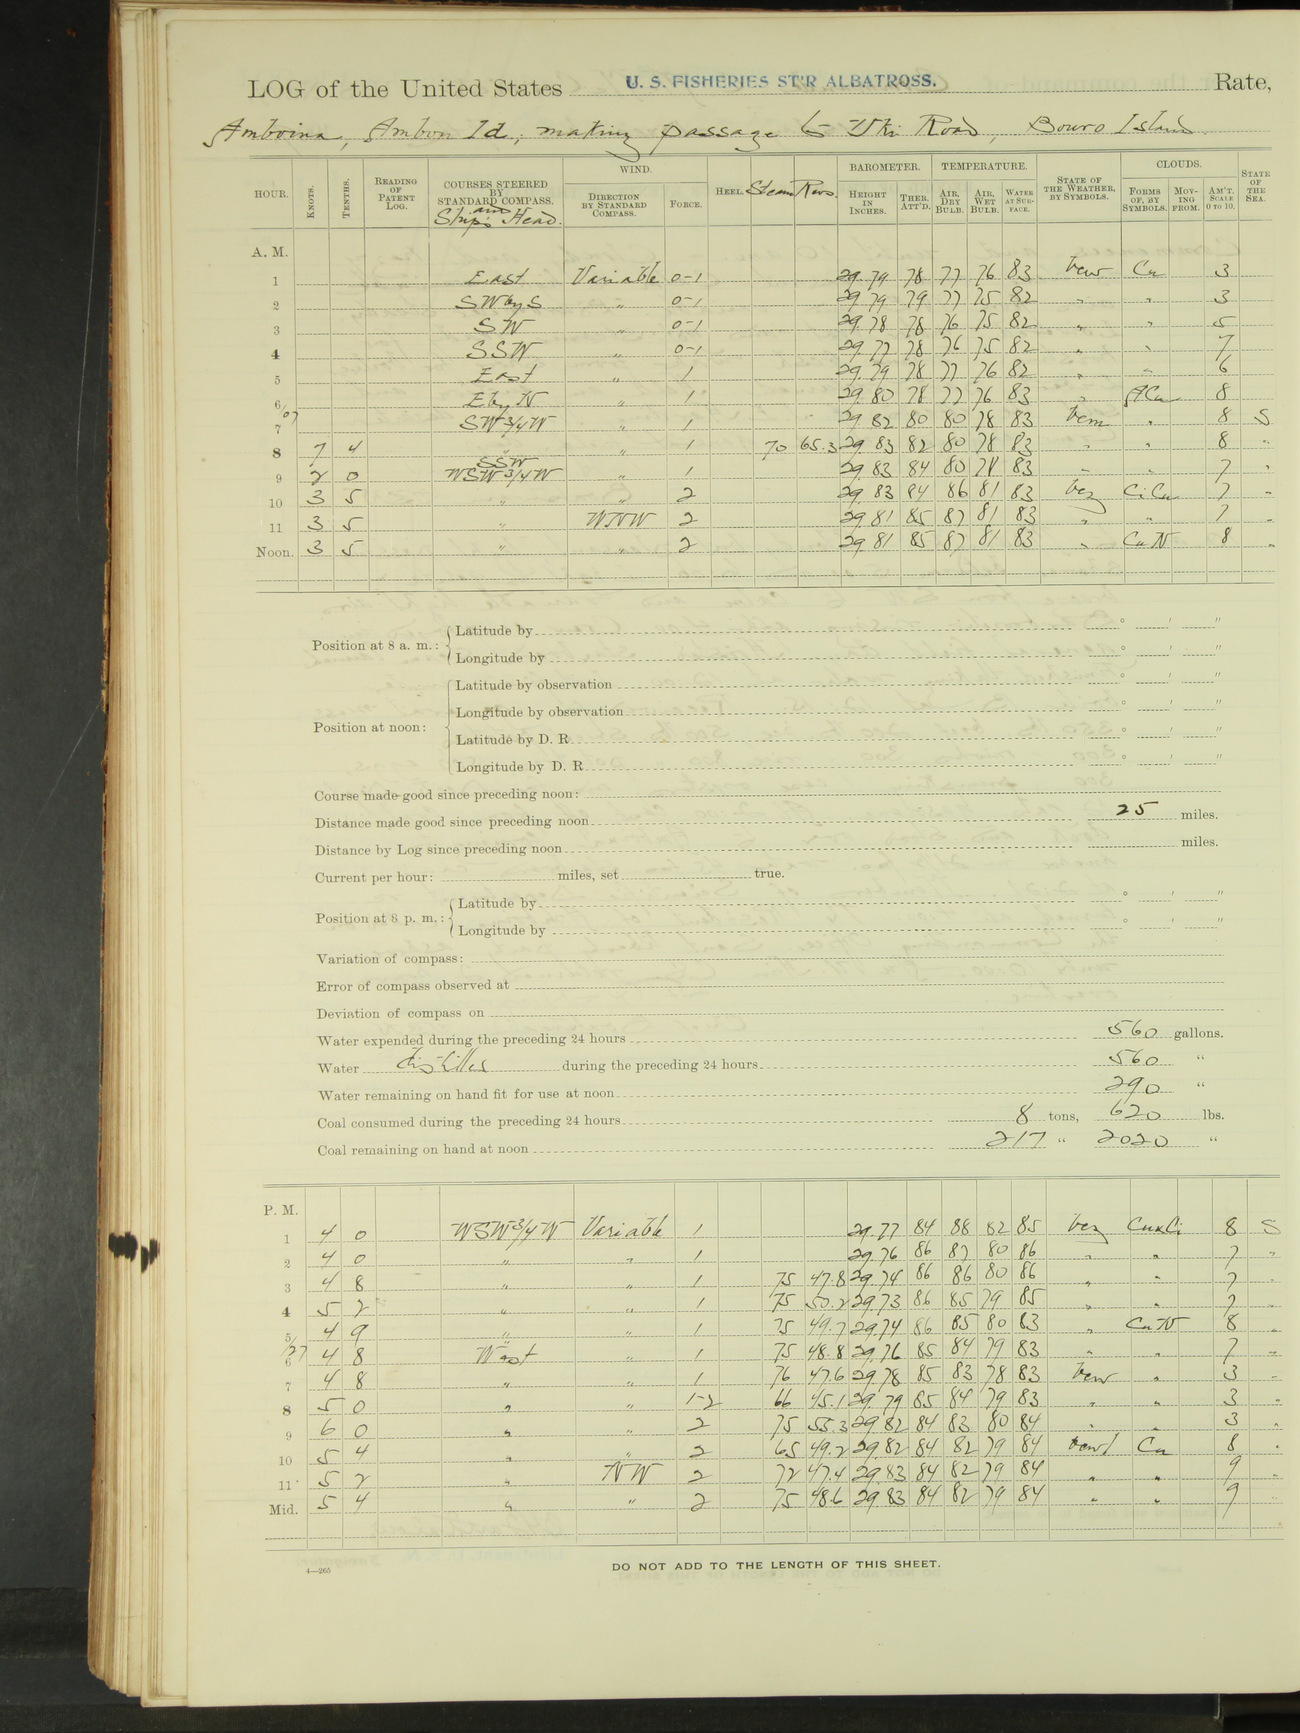 LOG of the United States U. S. FISHERIES ST'R ALBATROSS. Rate,
Amboina, Ambon Id., making passage to Uki Road, Bouro Island.
HOUR. KNOTS. TENTHS. READING OF PATENT LOG. COURSES STEERED BY STANDARD COMPASS. and Ship's Head. WIND. DIRECTION BY STANDARD COMPASS. FORCE. HEEL. Steam Revs. BAROMETER. HEIGHT IN INCHES. THER. ATT'D. TEMPERATURE. AIR, DRY BULB. AIR, WET BULB. WATER AT SURFACE. STATE OF THE WEATHER, BY SYMBOLS. CLOUDS. FORMS OF, BY SYMBOLS. MOVING FROM. AM'T. SCALE 0 TO 10. STATE OF THE SEA.
A. M.
1 East Variable 0-1 29.79 78 77 76 83 bcw Cu 3
2 SW by S " 0-1 29 79 79 77 75 82 " " 3
3 SW " 0-1 29.78 78 76 75 82 " " 5
4 SSW " 0-1 29.77 78 76 75 82 " " 7
5 East " 1 29.79 78 77 76 82 " " 6
6 E by N " 1 29.80 78 77 76 83 " ACu 8
/07
7 SW 3/4 W " 1 29 82 80 80 78 83 bcm " 8 S
8 7 4 " " 1 70 65.3 29.83 82 80 78 83 " " 8 "
SSW
9 2 0 WSW 3/4 W " 1 29.83 84 80 78 83 " " 7 "
10 3 5 " " 2 29.83 84 86 81 83 bcz CiCu 7 "
11 3 5 " WNW 2 29 81 85 87 81 83 " " 7 "
Noon. 3 5 " " 2 29 81 85 87 81 83 " CuN 8 "
Position at 8 a. m.: Latitude by ° ' "
Longitude by ° ' "
Position at noon: Latitude by observation ° ' "
Longitude by observation ° ' "
Latitude by D. R. ° ' "
Longitude by D. R. ° ' "
Course made good since preceding noon:
Distance made good since preceding noon 25 miles.
Distance by Log since preceding noon miles.
Current per hour: miles, set true.
Position at 8 p. m.: Latitude by ° ' "
Longitude by ° ' "
Variation of compass:
Error of compass observed at
Deviation of compass on
Water expended during the preceding 24 hours 560 gallons.
Water distilled during the preceding 24 hours 560 "
Water remaining on hand fit for use at noon 290 "
Coal consumed during the preceding 24 hours 8 tons, 620 lbs.
Coal remaining on hand at noon 217 " 2020 "
P. M.
1 4 0 WSW 3/4 W Variable 1 29.77 84 88 82 85 bcz Cu&Ci 8 S
2 4 0 " " 1 29.76 86 87 80 86 " " 7 "
3 4 8 " " 1 75 47.8 29.74 86 86 80 86 " " 7 "
4 5 2 " " 1 75 50.2 29.73 86 85 79 85 " " 7 "
5 4 9 " " 1 75 49.7 29.74 86 85 80 83 " CuN 8 "
6 4 8 West " 1 75 48.8 29.76 85 84 79 83 " " 7 "
7 4 8 " " 1 76 47.6 29.78 85 83 78 83 bcw " 3 "
8 5 0 " " 1-2 66 45.1 29.79 85 84 79 83 " " 3 "
9 6 0 " 2 75 55.3 29.82 84 83 80 84 " " 3 "
10 5 4 " " 2 65 49.2 29.82 84 82 79 84 Cu 8 "
11 5 2 " NW 2 72 47.4 29.83 84 82 79 84 " " 9 "
Mid. 5 4 " " 2 75 48.6 29.83 84 82 79 84 " " 9 "
DO NOT ADD TO THE LENGTH OF THIS SHEET.
4—265